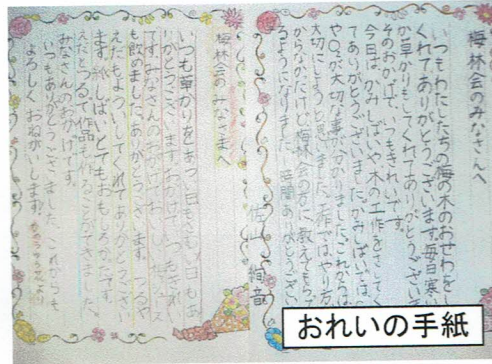 梅林会のみなさんへ
いつもわたしたちの梅の木のおせわをし
くれてありがとうございます。毎日寒い
か草かりもしてくれてありがとうござい
そのおかげで、いつもきれいです。
今日は、かみしばいや木の工作をさせてく
てありがとうございました。かみしばいでは、
や〇〇が大切な事が分かりました。これからは
大切にしようと思いました。工作ではやり方
からなかったけど梅林会の方に教えてもらって
るようになりました。
ありがとうござい
梅林会のみなさまへ
いつも草かりをあつい日もさむい日もあ
りがとうございます。おかげで
です。みなさんのおかげでおいしい梅ジュース
も飲めました。ありがとうございます。つるや
えだもよういしてくれてありがとうござい
ます。紙しばい、とてもおもしろかったです。
えだとつるで作品も作ることができました。
みなさんのおかげです。
いつもありがとうございました。これからも
よろしくおねがいします。
おれいの手紙